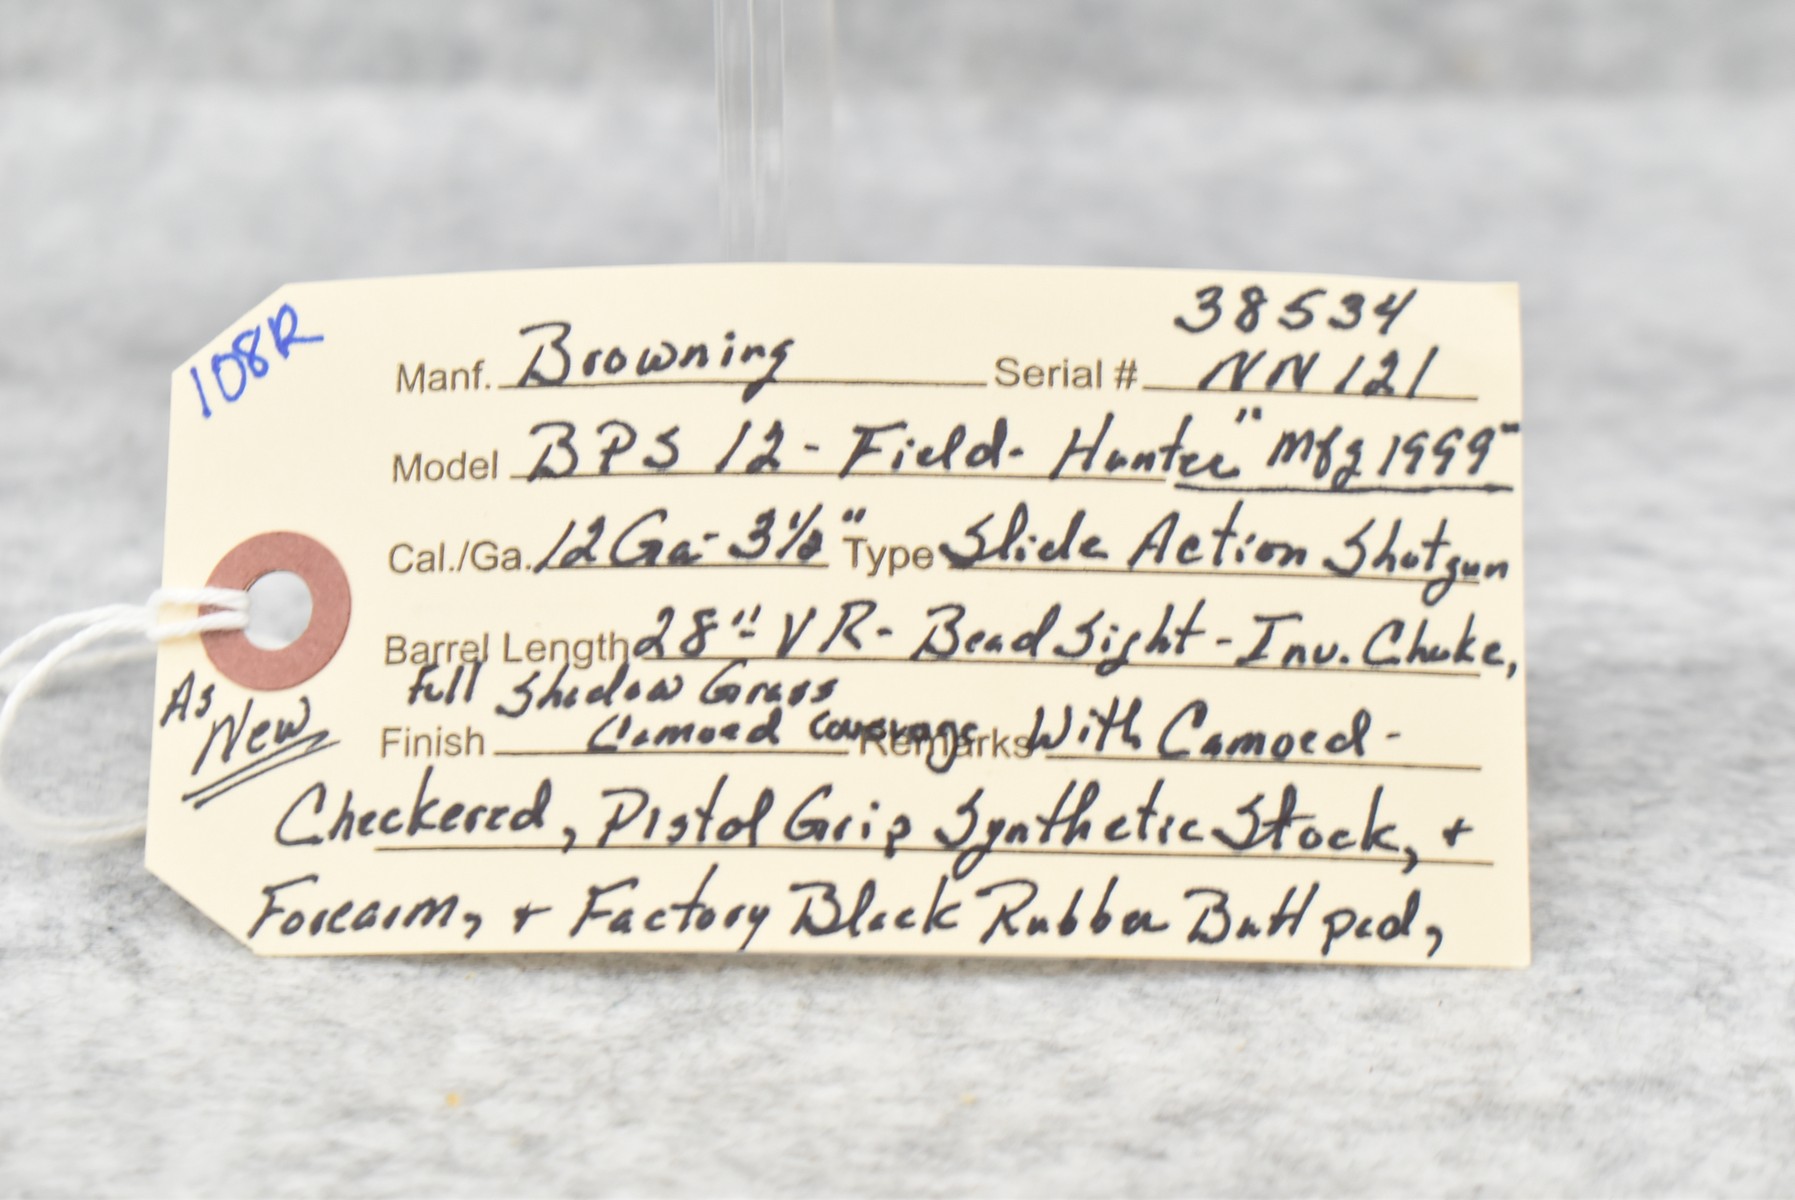 108R
38534
Manf. Browning Serial # NN121
Model BPS 12 - Field - Hunter "Mfg 1999"
Cal./Ga. 12 Ga - 3½" Type Slide Action Shotgun
Barrel Length 28" - VR - Bead Sight - Inv. Choke,
Full Shadow Grass
Finish Camoed Coverage Remarks With Camoed -
Checkered, Pistol Grip Synthetic Stock, +
Forearm, + Factory Black Rubber Butt pad,
As
New